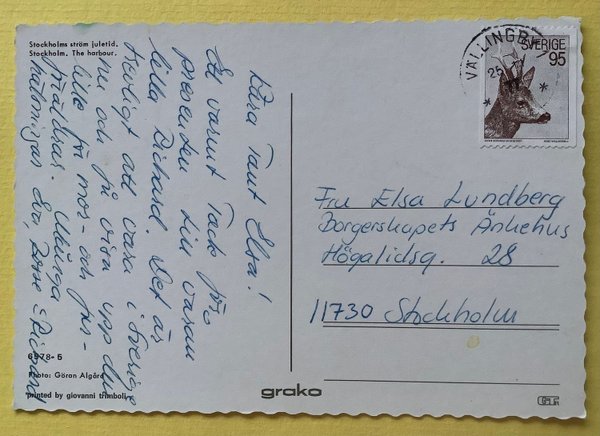 Stockholms ström juletid.
Stockholm. The harbour.
Kära Tant Elsa!
Ett varmt Tack för
presenten till vasan
lilla Richard. Det är
trevligt att vara i Sverige
nu och få visa upp den
lille för mor- och far-
föräldrar. Många
hälsningar
Richard
6978-5
Photo: Göran Algård
printed by giovanni trimboli
grako
VÄLLINGBY
25
SVERIGE
95
Fru Elsa Lundberg
Borgerskapets Änkehus
Högalidsg. 28
11730 Stockholm